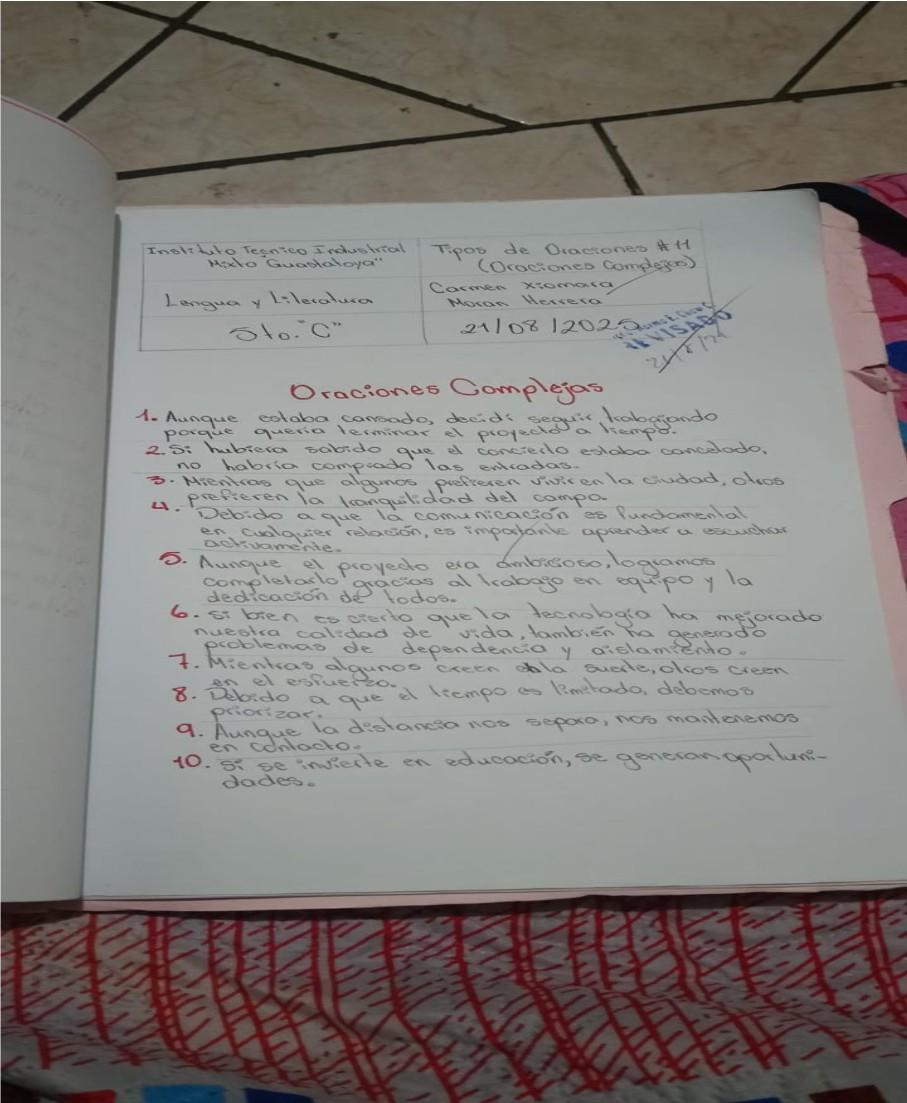 Instituto Tecnico Industrial
Mixto "Guastatoya"
Tipos de Oraciones #11
(Oraciones Complejas)
Lengua y Literatura
Carmen Xiomara
Moran Herrera
5to. "C"
21/08/2025
REVISADO
Oraciones Complejas
1. Aunque estaba cansado, decidí seguir trabajando
porque quería terminar el proyecto a tiempo.
2. Si hubiera sabido que el concierto estaba cancelado,
no habría comprado las entradas.
3. Mientras que algunos prefieren vivir en la ciudad, otros
prefieren la tranquilidad del campo.
4. Debido a que la comunicación es fundamental
en cualquier relación, es importante aprender a escuchar
activamente.
5. Aunque el proyecto era ambicioso, logramos
completarlo gracias al trabajo en equipo y la
dedicación de todos.
6. Si bien es cierto que la tecnología ha mejorado
nuestra calidad de vida, también ha generado
problemas de dependencia y aislamiento.
7. Mientras algunos creen la suerte, otros creen
en el esfuerzo.
8. Debido a que el tiempo es limitado, debemos
priorizar.
9. Aunque la distancia nos separa, nos mantenemos
en contacto.
10. Si se invierte en educación, se generan oportuni-
dades.